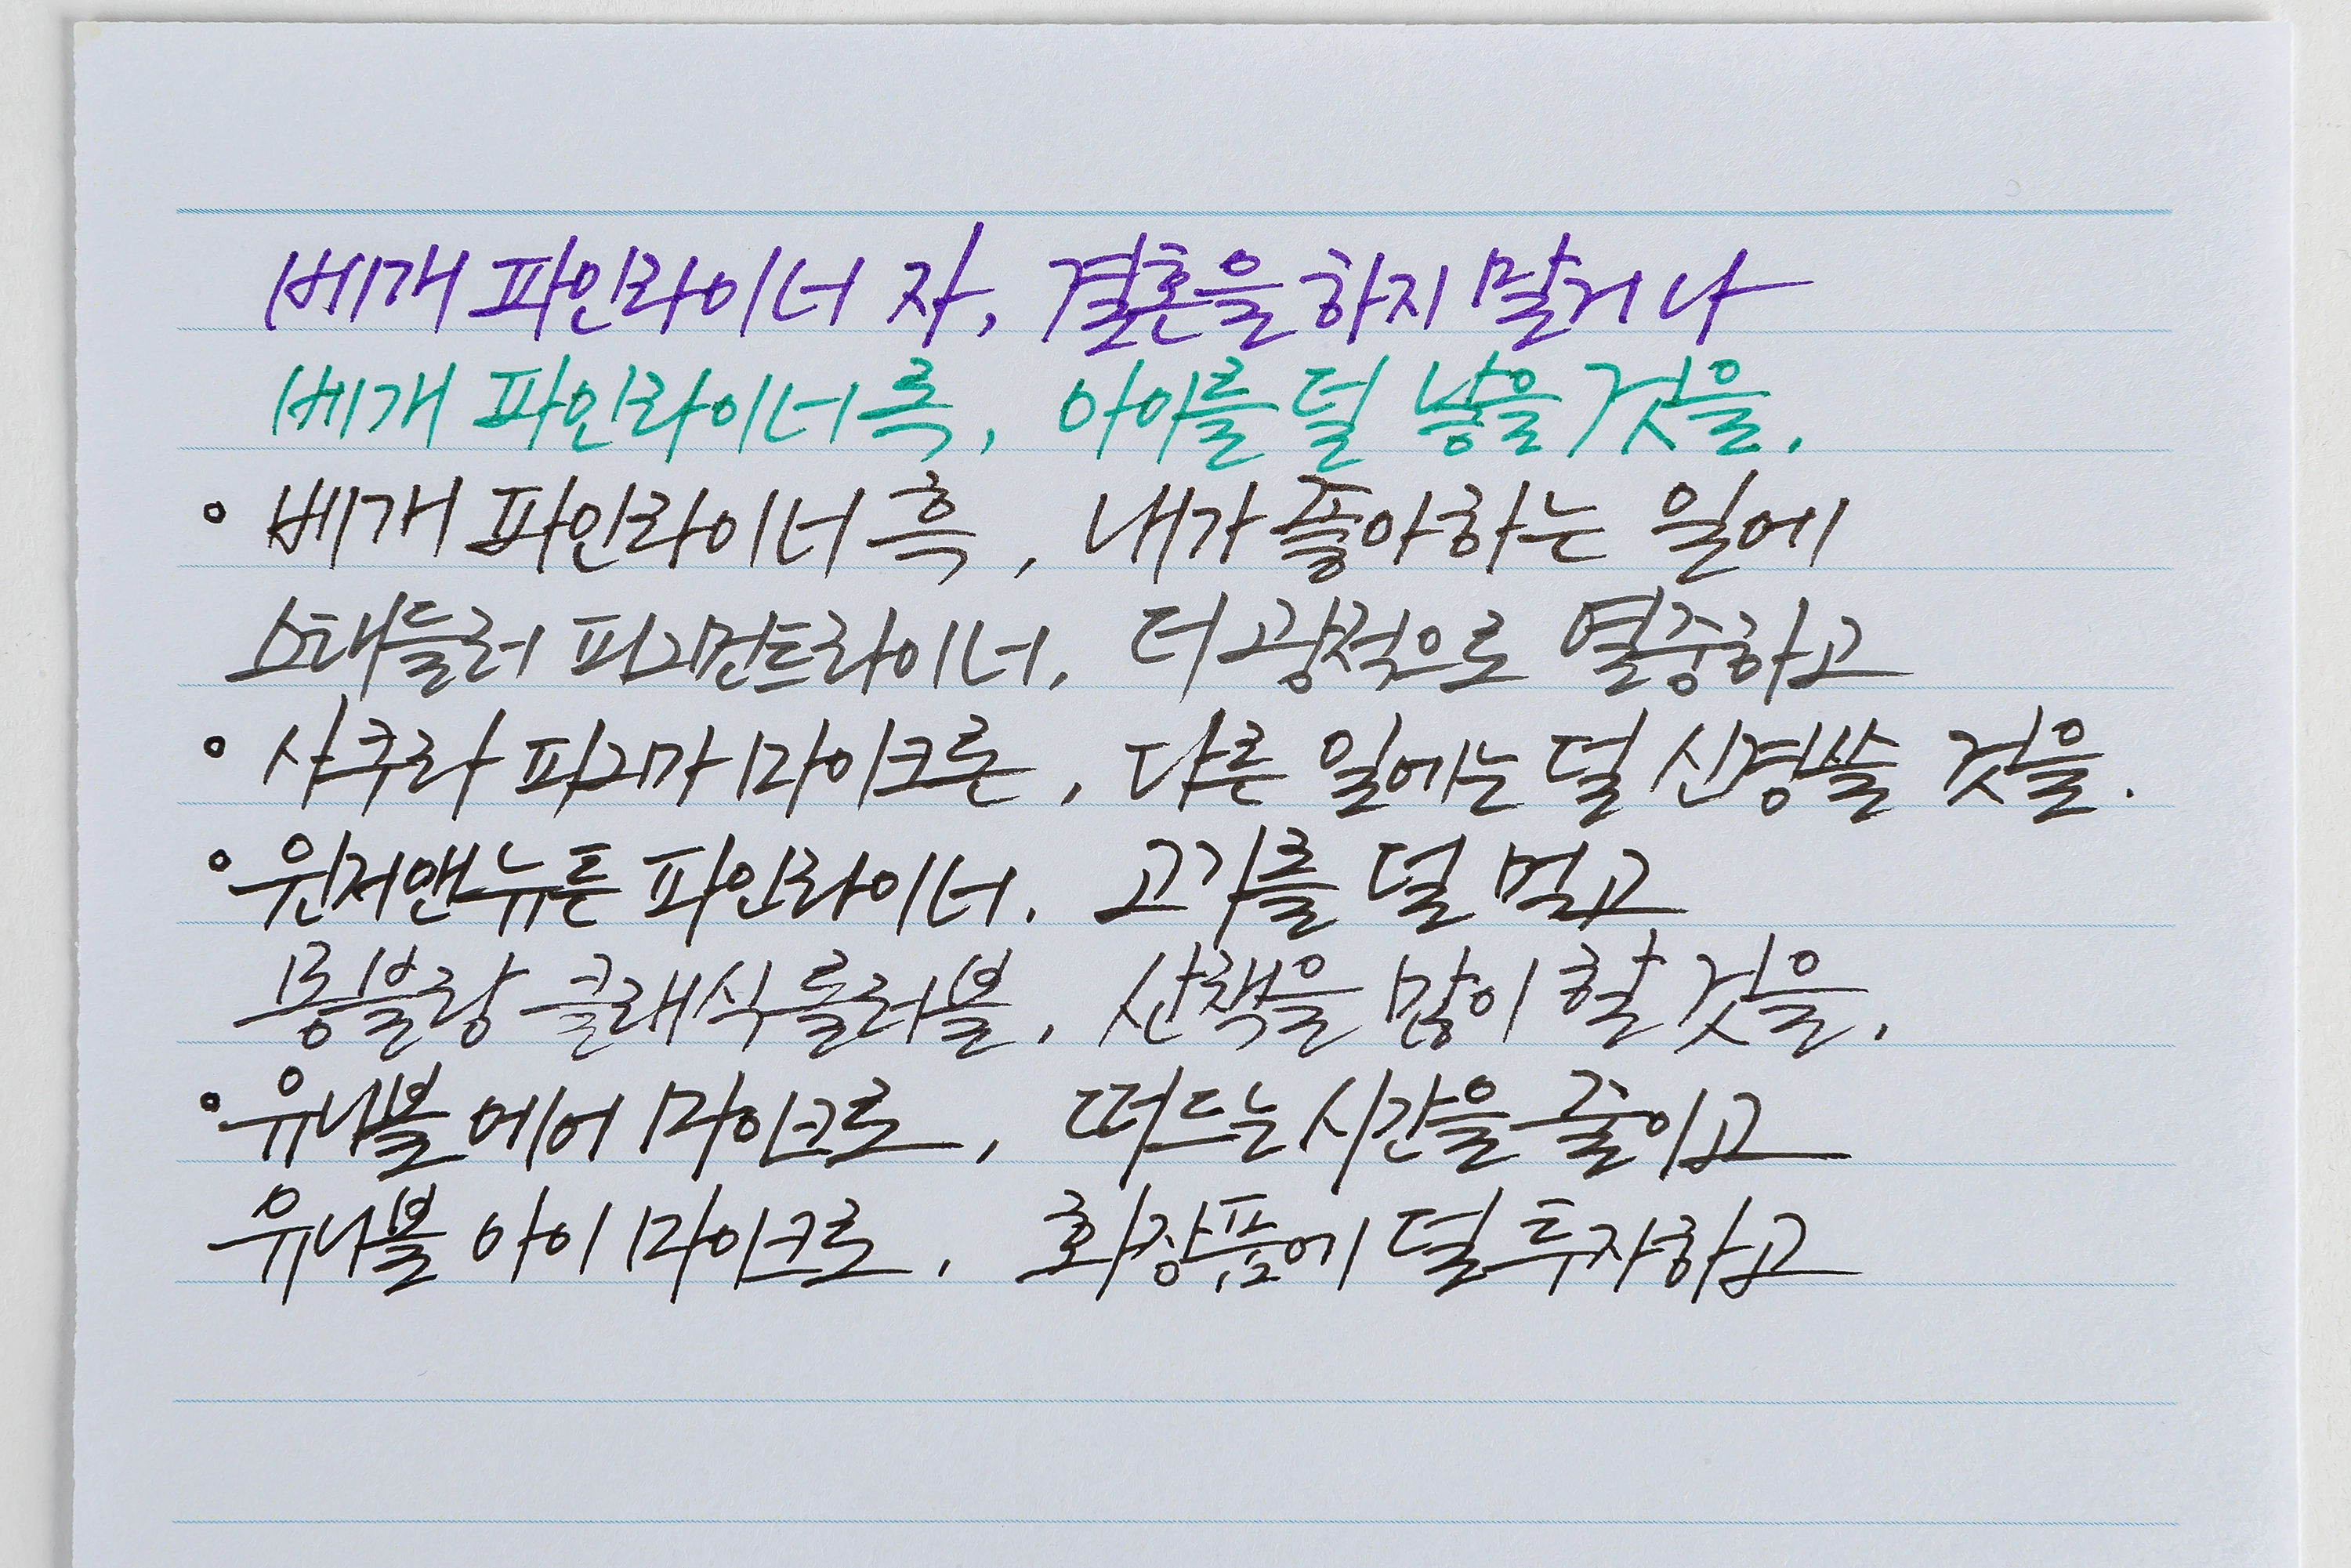 베개 파인라이너 자, 결혼을 하지 말거나
베개 파인라이너 록, 아이를 덜 낳을 것을.
• 베개 파인라이너 흑, 내가 좋아하는 일에
스태들러 피그먼트라이너, 더 광적으로 열중하고
• 사쿠라 피그마 마이크론, 다른 일에는 덜 신경쓸 것을.
• 윈저앤뉴튼 파인라이너. 고기를 덜 먹고
몽블랑 클래식 롤러볼, 산책을 많이 할 것을.
• 유니볼 에어 마이크로, 떠드는 시간을 줄이고
유니볼 아이 마이크로, 화장품에 덜 투자하고